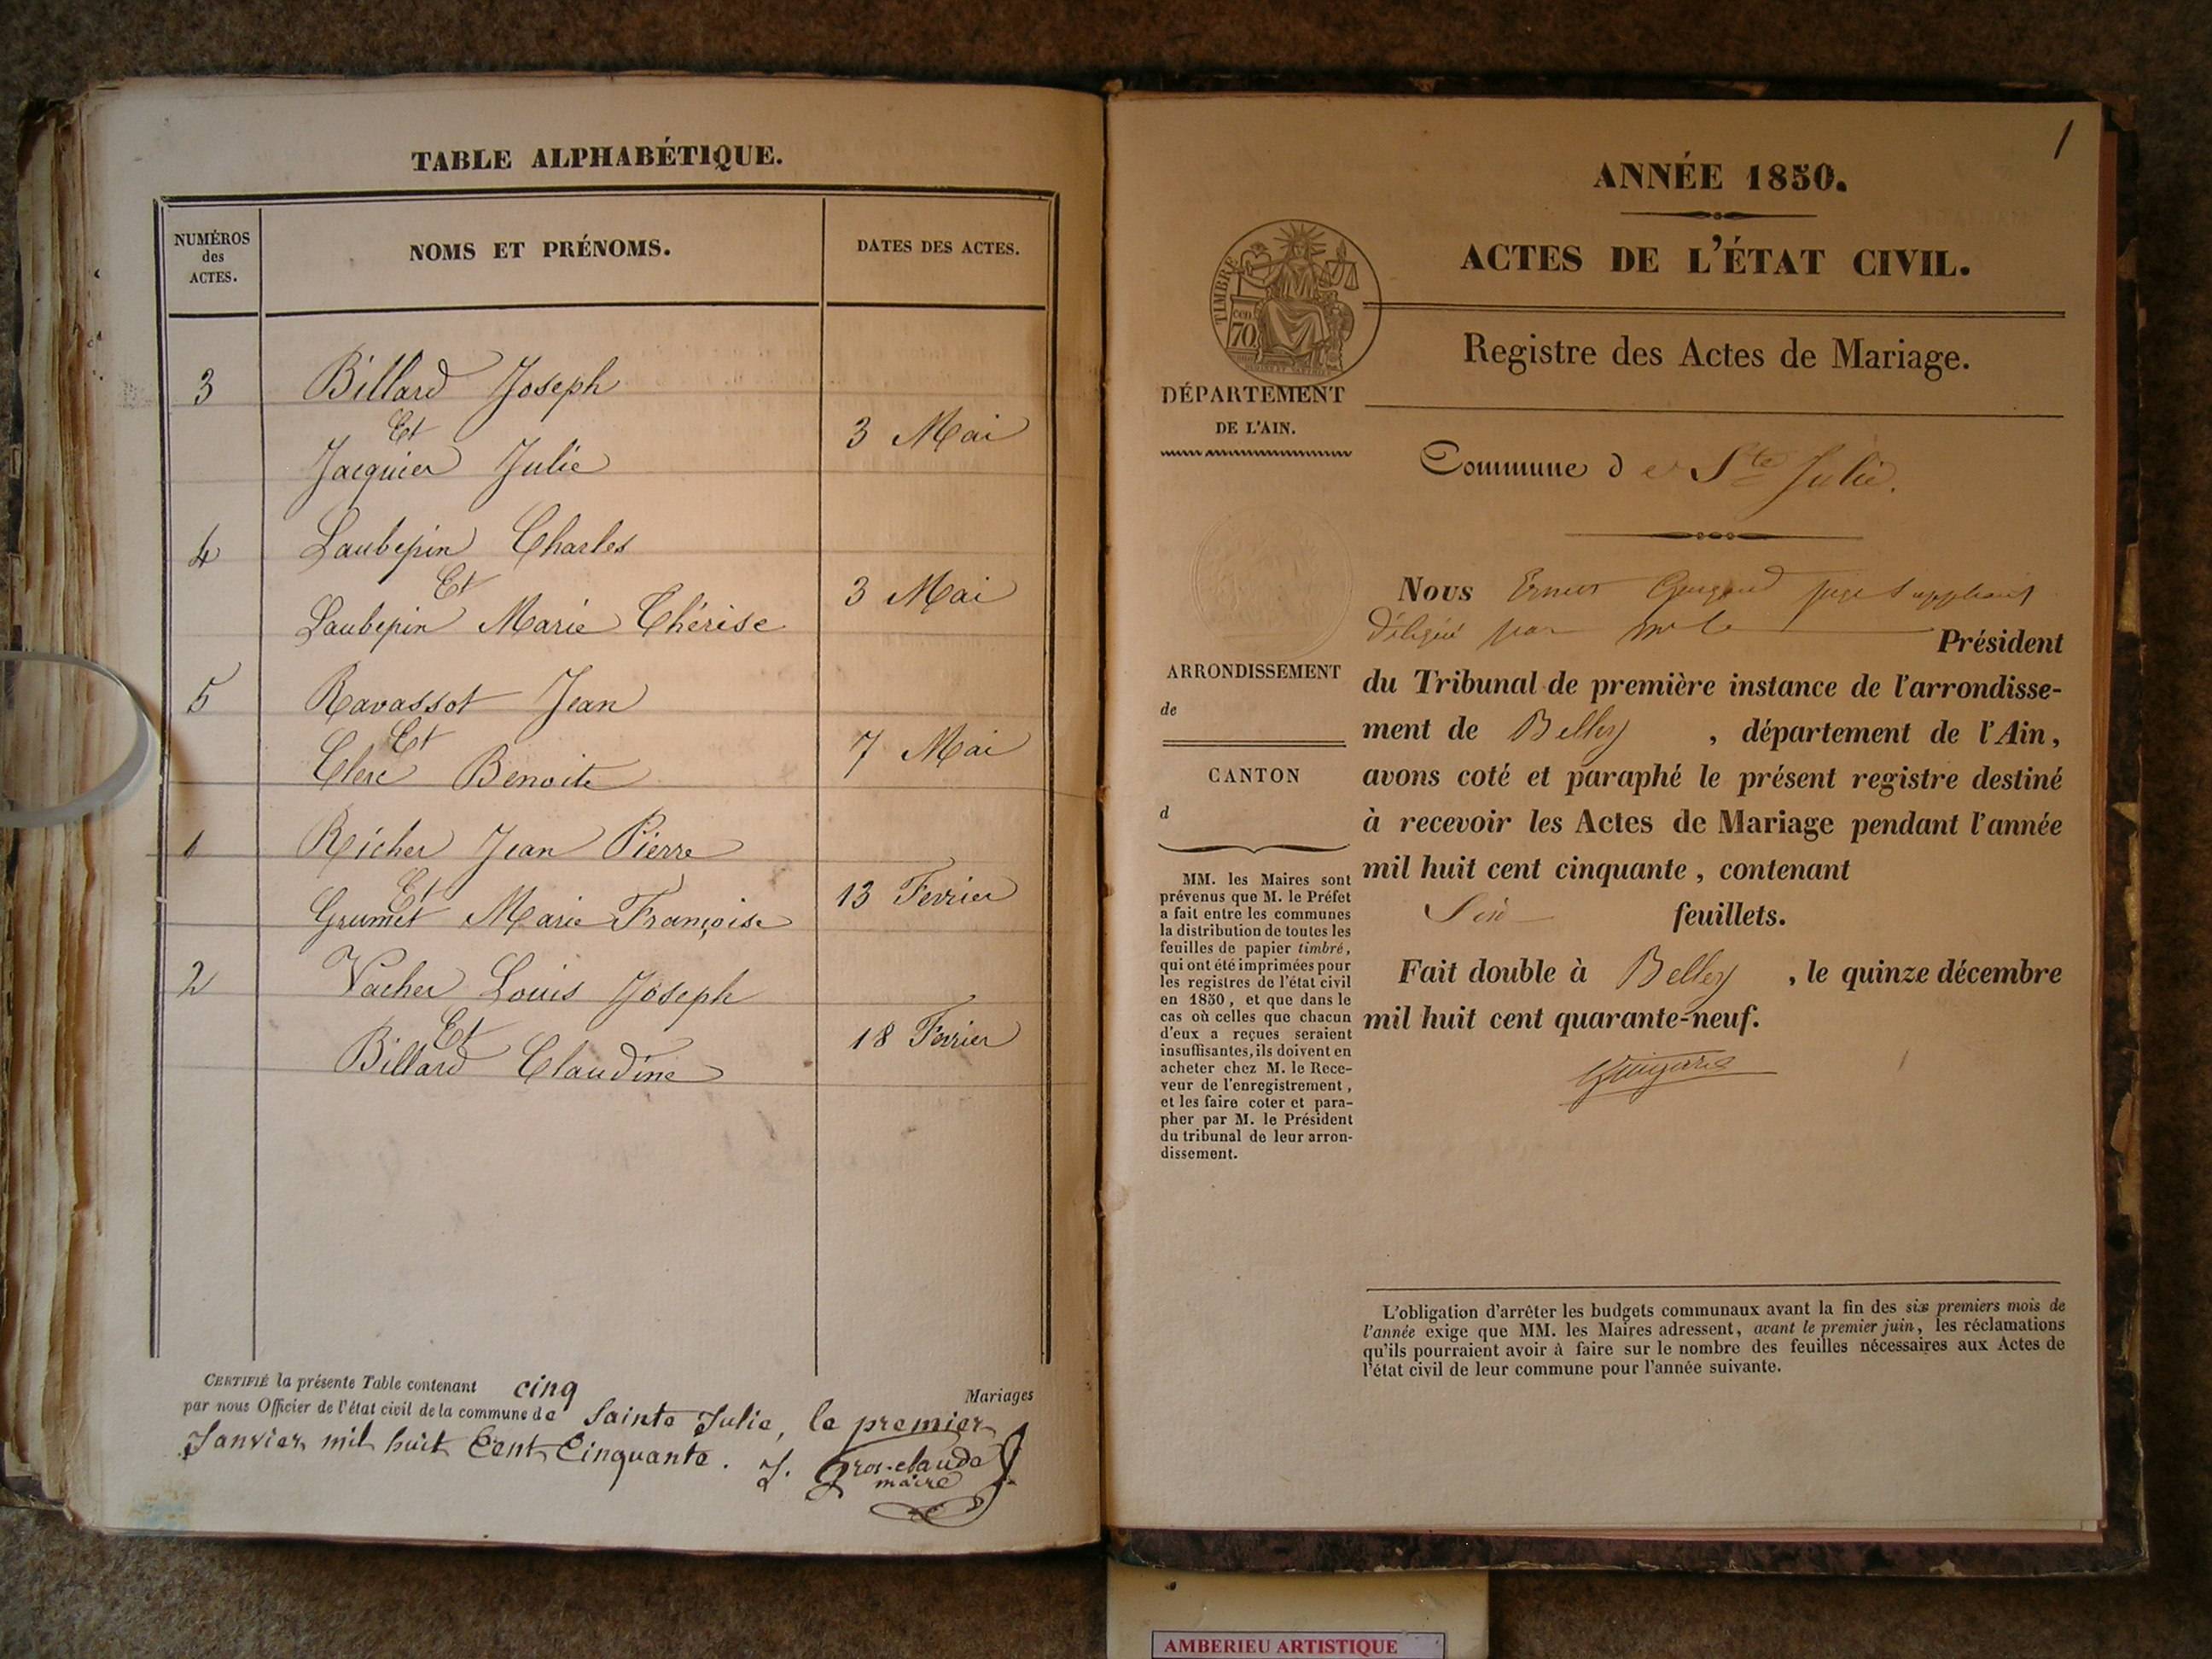 TABLE ALPHABÉTIQUE.
NUMÉROS
des
ACTES.
NOMS ET PRÉNOMS.
DATES DES ACTES.
3 Billard Joseph
Et
Jacquier Julie
3 Mai
4 Laubepin Charles
Et
Laubepin Marie Thérèse
3 Mai
5 Ravassot Jean
Et
Clerc Benoite
7 Mai
1 Richer Jean Pierre
Et
Grumet Marie Françoise
13 Fevrier
2 Vacher Louis Joseph
Et
Billard Claudine
18 Fevrier
CERTIFIÉ la présente Table contenant cinq Mariages
par nous Officier de l'état civil de la commune de Sainte Julie, le premier
Janvier mil huit Cent Cinquante. J. Gros-claude
maire
1
ANNÉE 1850.
ACTES DE L'ÉTAT CIVIL.
Registre des Actes de Mariage.
TIMBRE
70 cen
DÉPARTEMENT
DE L'AIN.
Commune de Ste Julie.
ARRONDISSEMENT
de
CANTON
d
MM. les Maires sont
prévenus que M. le Préfet
a fait entre les communes
la distribution de toutes les
feuilles de papier timbré,
qui ont été imprimées pour
les registres de l'état civil
en 1850, et que dans le
cas où celles que chacun
d'eux a reçues seraient
insuffisantes, ils doivent en
acheter chez M. le Rece-
veur de l'enregistrement,
et les faire coter et para-
pher par M. le Président
du tribunal de leur arron-
dissement.
Nous juge Suppléant
délégué par mr le Président
du Tribunal de première instance de l'arrondisse-
ment de Belley, département de l'Ain,
avons coté et paraphé le présent registre destiné
à recevoir les Actes de Mariage pendant l'année
mil huit cent cinquante, contenant
Six feuillets.
Fait double à Belley, le quinze décembre
mil huit cent quarante-neuf.
L'obligation d'arrêter les budgets communaux avant la fin des six premiers mois de
l'année exige que MM. les Maires adressent, avant le premier juin, les réclamations
qu'ils pourraient avoir à faire sur le nombre des feuilles nécessaires aux Actes de
l'état civil de leur commune pour l'année suivante.
AMBERIEU ARTISTIQUE